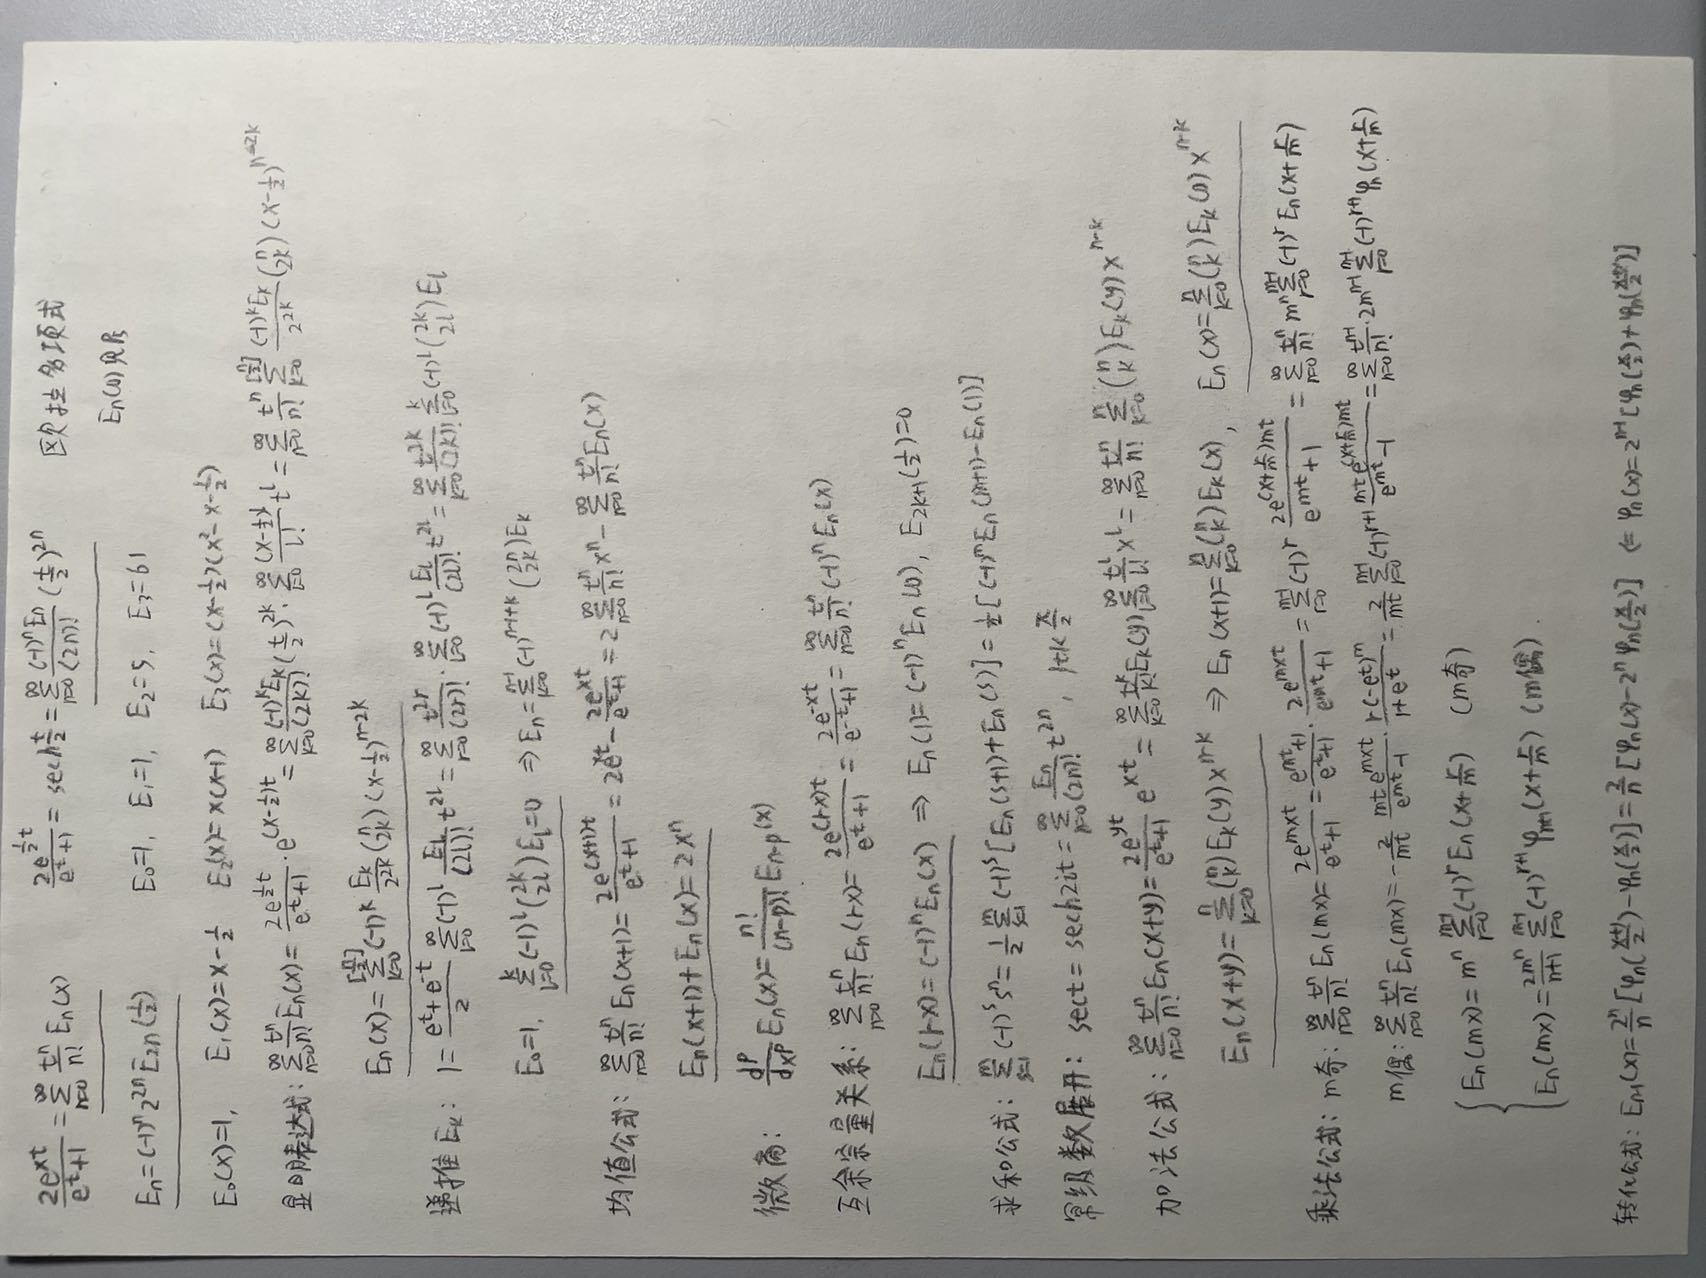 2e^{xt}/(e^t+1) = ∑_{n=0}^∞ t^n/n! E_n(x)   2e^{½t}/(e^t+1) = sech t/2 = ∑_{n=0}^∞ (-1)^n E_n/(2n)! (t/2)^{2n}   欧拉多项式
E_n = (-1)^n 2^{2n} E_{2n}(½)   E_0=1, E_1=1, E_2=5, E_3=61   E_n(0)
E_0(x)=1, E_1(x)=x-½   E_2(x)=x(x-1)   E_3(x)=(x-½)(x²-x-½)
显明表达式: ∑_{n=0}^∞ t^n/n! E_n(x) = 2e^{½t}/(e^t+1) · e^{(x-½)t} = ∑_{k=0}^∞ (-1)^k E_k/(2k)! (t/2)^{2k} · ∑_{l=0}^∞ (x-½)^l/l! t^l = ∑_{n=0}^∞ t^n/n! ∑_{k=0}^{[n/2]} (-1)^k E_k/2^{2k} (n 2k) (x-½)^{n-2k}
E_n(x) = ∑_{k=0}^{[n/2]} (-1)^k E_k/2^{2k} (n 2k) (x-½)^{n-2k}
递推 E_k: 1 = (e^t+e^{-t})/2 ∑_{l=0}^∞ (-1)^l E_l/(2l)! t^{2l} = ∑_{r=0}^∞ t^{2r}/(2r)! · ∑_{l=0}^∞ (-1)^l E_l/(2l)! t^{2l} = ∑_{k=0}^∞ t^{2k}/(2k)! ∑_{l=0}^k (-1)^l (2k 2l) E_l
E_0=1, ∑_{l=0}^k (-1)^l (2k 2l) E_l=0 ⇒ E_n = ∑_{k=0}^{n-1} (-1)^{n+1+k} (2n 2k) E_k
均值公式: ∑_{n=0}^∞ t^n/n! E_n(x+1) = 2e^{(x+1)t}/(e^t+1) = 2e^{xt} - 2e^{xt}/(e^t+1) = 2∑_{n=0}^∞ t^n/n! x^n - ∑_{n=0}^∞ t^n/n! E_n(x)
E_n(x+1)+E_n(x)=2x^n
微商: d^p/dx^p E_n(x) = n!/(n-p)! E_{n-p}(x)
互余宗量关系: ∑_{n=0}^∞ t^n/n! E_n(1-x) = 2e^{(1-x)t}/(e^t+1) = 2e^{-xt}/(e^{-t}+1) = ∑_{n=0}^∞ t^n/n! (-1)^n E_n(x)
E_n(1-x)=(-1)^n E_n(x) ⇒ E_n(1)=(-1)^n E_n(0), E_{2k+1}(½)=0
求和公式: ∑_{s=1}^m (-1)^s s^n = ½ ∑_{s=1}^m (-1)^s [E_n(s+1)+E_n(s)] = ½[(-1)^m E_n(m+1)-E_n(1)]
幂级数展开: sec t = sech it = ∑_{n=0}^∞ E_n/(2n)! t^{2n}, |t|<π/2
加法公式: ∑_{n=0}^∞ t^n/n! E_n(x+y) = 2e^{yt}/(e^t+1) e^{xt} = ∑_{k=0}^∞ t^k/k! E_k(y) ∑_{l=0}^∞ t^l/l! x^l = ∑_{n=0}^∞ t^n/n! ∑_{k=0}^n (n k) E_k(y) x^{n-k}
E_n(x+y) = ∑_{k=0}^n (n k) E_k(y) x^{n-k} ⇒ E_n(x+1) = ∑_{k=0}^n (n k) E_k(x), E_n(x) = ∑_{k=0}^n (n k) E_k(0) x^{n-k}
乘法公式: m奇: ∑_{n=0}^∞ t^n/n! E_n(mx) = 2e^{mxt}/(e^t+1) = (e^{mt}+1)/(e^t+1) · 2e^{mxt}/(e^{mt}+1) = ∑_{r=0}^{m-1} (-1)^r 2e^{(x+r/m)mt}/(e^{mt}+1) = ∑_{n=0}^∞ t^n/n! m^n ∑_{r=0}^{m-1} (-1)^r E_n(x+r/m)
m偶: ∑_{n=0}^∞ t^n/n! E_n(mx) = -2/mt · mte^{mxt}/(e^{mt}-1) · (1-(-e^t)^m)/(1+e^t) = 2/mt ∑_{r=0}^{m-1} (-1)^{r+1} mte^{(x+r/m)mt}/(e^{mt}-1) = ∑_{n=0}^∞ t^{n-1}/n! · 2m^{n-1} ∑_{r=0}^{m-1} (-1)^{r+1} φ_n(x+r/m)
{ E_n(mx) = m^n ∑_{r=0}^{m-1} (-1)^r E_n(x+r/m)   (m奇)
E_n(mx) = 2m^n/(n+1) ∑_{r=0}^{m-1} (-1)^{r+1} φ_{n+1}(x+r/m) (m偶).
转化公式: E_{n-1}(x) = 2^n/n [φ_n((x+1)/2)-φ_n(x/2)] = 2/n [φ_n(x)-2^n φ_n(x/2)] (⇐ φ_n(x)=2^{n-1}[φ_n(x/2)+φ_n((x+1)/2)]